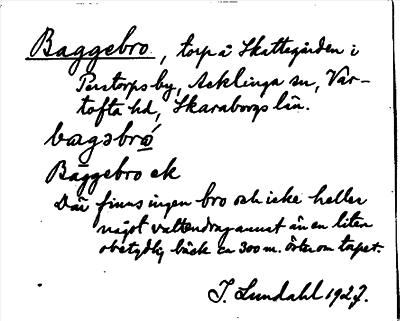 Baggebro, torp å Skattegården i
Perstorps by, Acklinga sn, Var-
tofta hd, Skaraborgs län.
bagəbrọ́
Baggebro ek
Där finns ingen bro och icke heller
något vattendrag annat än en liten
obetydlig bäck ca 300 m. öster om torpet.
I. Lundahl 1927.